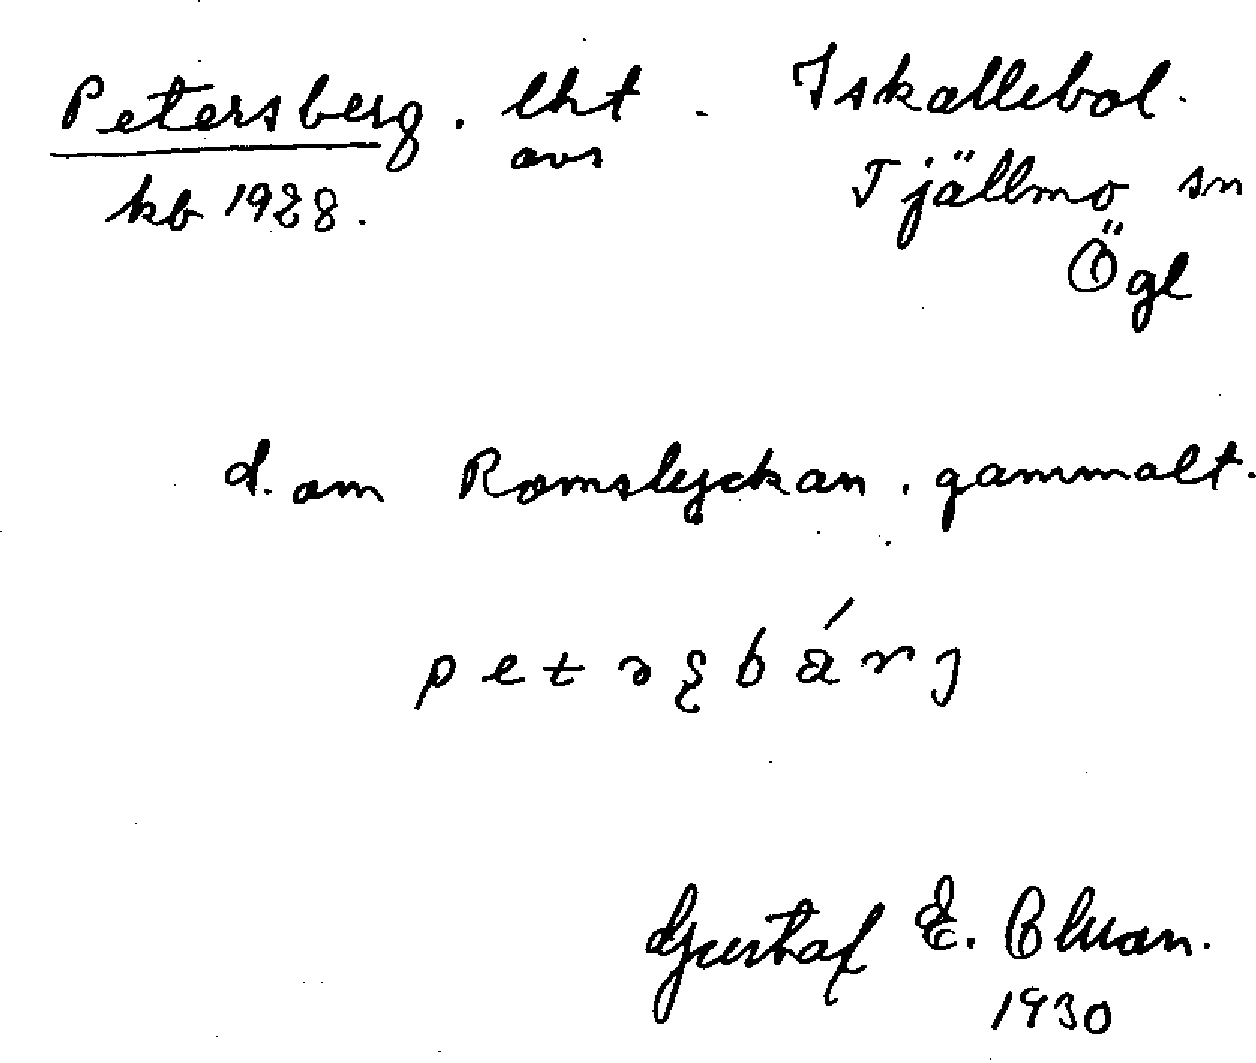 Petersberg. lht. Iskallebol.
avs
kb 1928.
Tjällmo sn
Ögl
d. om Romslyckan. gammalt.
Gustaf E.
1930